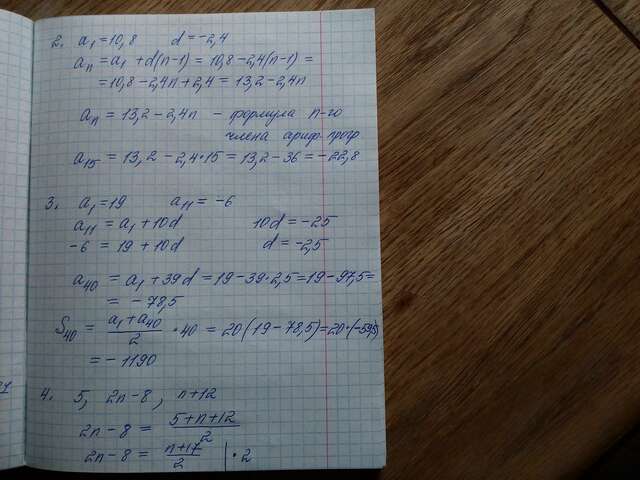 2. a₁ = 10,8 d = -2,4
aₙ = a₁ + d(n-1) = 10,8 - 2,4(n-1) =
= 10,8 - 2,4n + 2,4 = 13,2 - 2,4n
aₙ = 13,2 - 2,4n - формула n-го
члена ариф. прогр.
a₁₅ = 13,2 - 2,4·15 = 13,2 - 36 = -22,8
3. a₁ = 19 a₁₁ = -6
a₁₁ = a₁ + 10d 10d = -25
-6 = 19 + 10d d = -2,5
a₄₀ = a₁ + 39d = 19 - 39·2,5 = 19 - 97,5 =
= -78,5
S₄₀ = (a₁ + a₄₀)/2 · 40 = 20(19 - 78,5) = 20·(-59,5)
= -1190
4. 5, 2n-8, n+12
2n - 8 = (5+n+12)/2
2n - 8 = (n+17)/2 | · 2